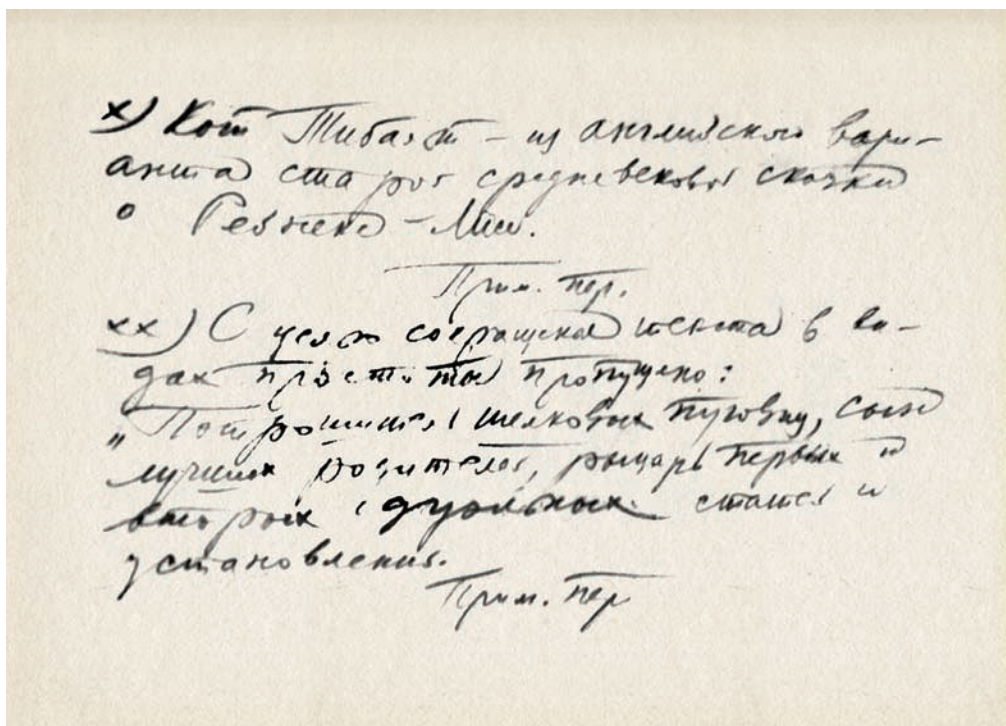 х) Кот Тибальт – из английского вари-
анта старой средневековой сказки
о Рейнеке-Лисе.
Прим. пер.
хх) С целью сокращения текста в ви-
дах простоты пропущено:
„Потрошитель шелковых пуговиц, сын
лучших родителей, рыцарь первых и
вторых дуэльных статей и
установления.
Прим. пер